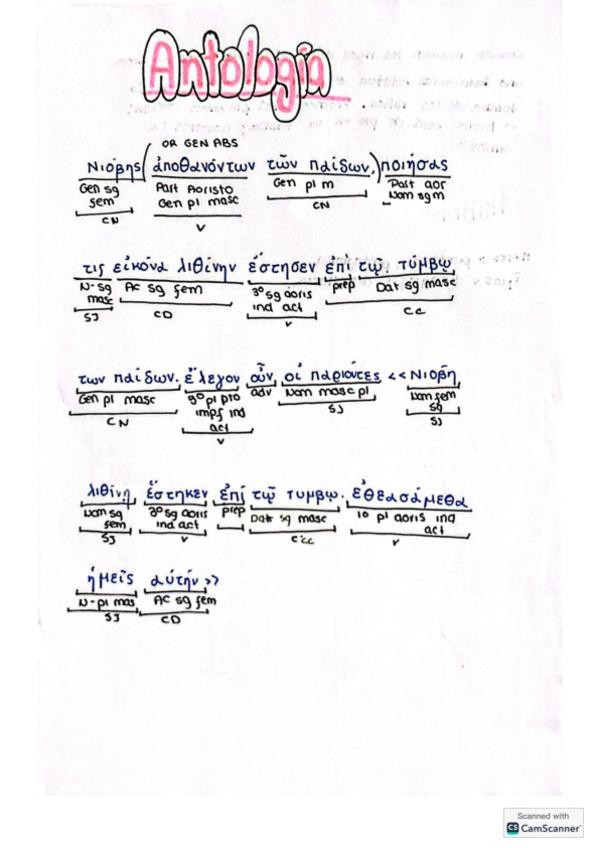 Antología
OR GEN ABS
Νιόβης (ἀποθανόντων τῶν παίδων,) ποιήσας
Gen sg Part Aoristo Gen pl m Part aor
fem Gen pl masc Nom sg m
CN V CN
τις εἰκόνα λιθίνην ἔστησεν ἐπί τῷ τύμβῳ
N-sg AC sg fem 3º sg aoris prep Dat sg masc
masc ind act
SJ CD V CC
των παίδων. ἔλεγον οὖν οἱ παριόντες <<Νιόβη
Gen pl masc 3º pl pto adv Nom masc pl Nom fem
impf ind sg
act
CN V SJ SJ
λιθίνη ἕστηκεν ἐπί τῷ τυμβῳ. ἐθεασάμεθα
Nom sg 3º sg aoris prep Dat sg masc 1º pl aoris ind
fem ind act act
SJ V CCC V
ἡμεῖς αὐτήν>>
N-pl mas AC sg fem
SJ CD
Scanned with
CS CamScanner